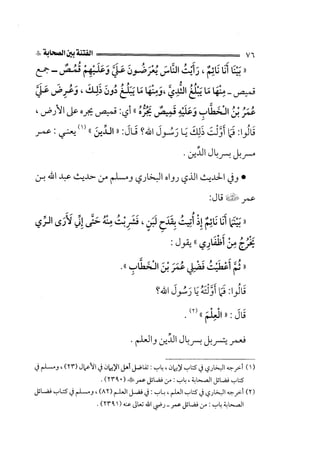 ٧٦ الفتنة بين الصحابة
« بَيْنَا أَنَا نَائِمٌ ، رَأَيْتُ النَّاسَ يُعْرَضُونَ عَلَيَّ وَعَلَيْهِمْ قُمُصٌ - جمع
قميص - مِنْهَا مَا يَبْلُغُ الثُّدِيَّ ، وَمِنْهَا مَا يَبْلُغُ دُونَ ذَلِكَ ، وَعُرِضَ عَلَيَّ
عُمَرُ بْنُ الْخَطَّابِ وَعَلَيْهِ قَمِيصٌ يَجُرُّهُ » أي: قميص يجره على الأرض ،
قَالُوا: فَمَا أَوَّلْتَ ذَلِكَ يَا رَسُولَ الله؟ قَالَ: « الدِّينَ » (١) يعني : عمر
مسربل بسربال الدين .
• وفي الحديث الذي رواه البخاري ومسلم من حديث عبد الله بن
عمر قال:
« بَيْنَمَا أَنَا نَائِمٌ إِذْ أُتِيتُ بِقَدَحِ لَبَنٍ ، فَشَرِبْتُ مِنْهُ حَتَّى إِنِّي لَأَرَى الرِّيَّ
يَخْرُجُ مِنْ أَظْفَارِي » يقول :
« ثُمَّ أَعْطَيْتُ فَضْلِي عُمَرَ بْنَ الْخَطَّابِ ».
قَالُوا: فَمَا أَوَّلْتَهُ يَا رَسُولَ الله؟
قَالَ : « الْعِلْمَ » (٢) .
فعمر يتسربل بسربال الدين والعلم .
(١) أخرجه البخاري في كتاب الإيمان ، باب : تفاضل أهل الإيمان في الأعمال (٢٣) ، ومسلم في
كتاب فضائل الصحابة ، باب : من فضائل عمر (٢٣٩٠) .
(٢) أخرجه البخاري في كتاب العلم ، باب : في فضل العلم (٨٢) ، ومسلم في كتاب فضائل
الصحابة باب : من فضائل عمر - رضي الله تعالى عنه (٢٣٩١) .